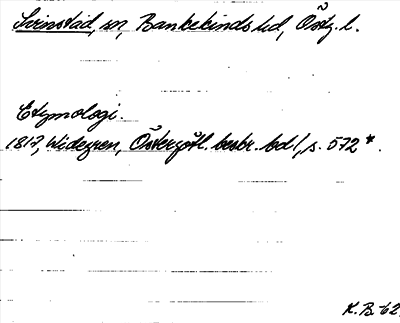 Svinstad, sn, Bankekinds hd, Östg. l.
Etymologi.
1817, Widegren, Östergötl. beskr. bd 1, s. 572*.
K.B. -62